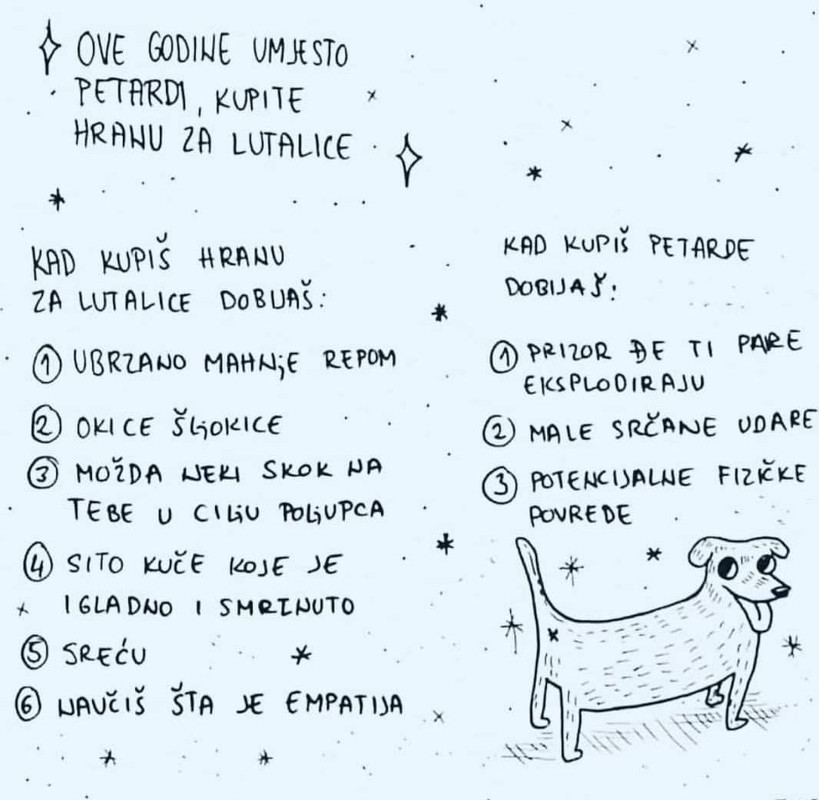 OVE GODINE UMJESTO
PETARDI, KUPITE
HRANU ZA LUTALICE
KAD KUPIŠ HRANU
ZA LUTALICE DOBIJAŠ:
① UBRZANO MAHNjE REPOM
② OKICE ŠLjOKICE
③ MOŽDA NEKI SKOK NA
TEBE U CILjU POLjUPCA
④ SITO KUČE KOJE JE
I GLADNO I SMRZNUTO
⑤ SREĆU
⑥ NAUČIŠ ŠTA JE EMPATIJA
KAD KUPIŠ PETARDE
DOBIJAŠ:
① PRIZOR ĐE TI PARE
EKSPLODIRAJU
② MALE SRČANE UDARE
③ POTENCIJALNE FIZIČKE
POVREDE